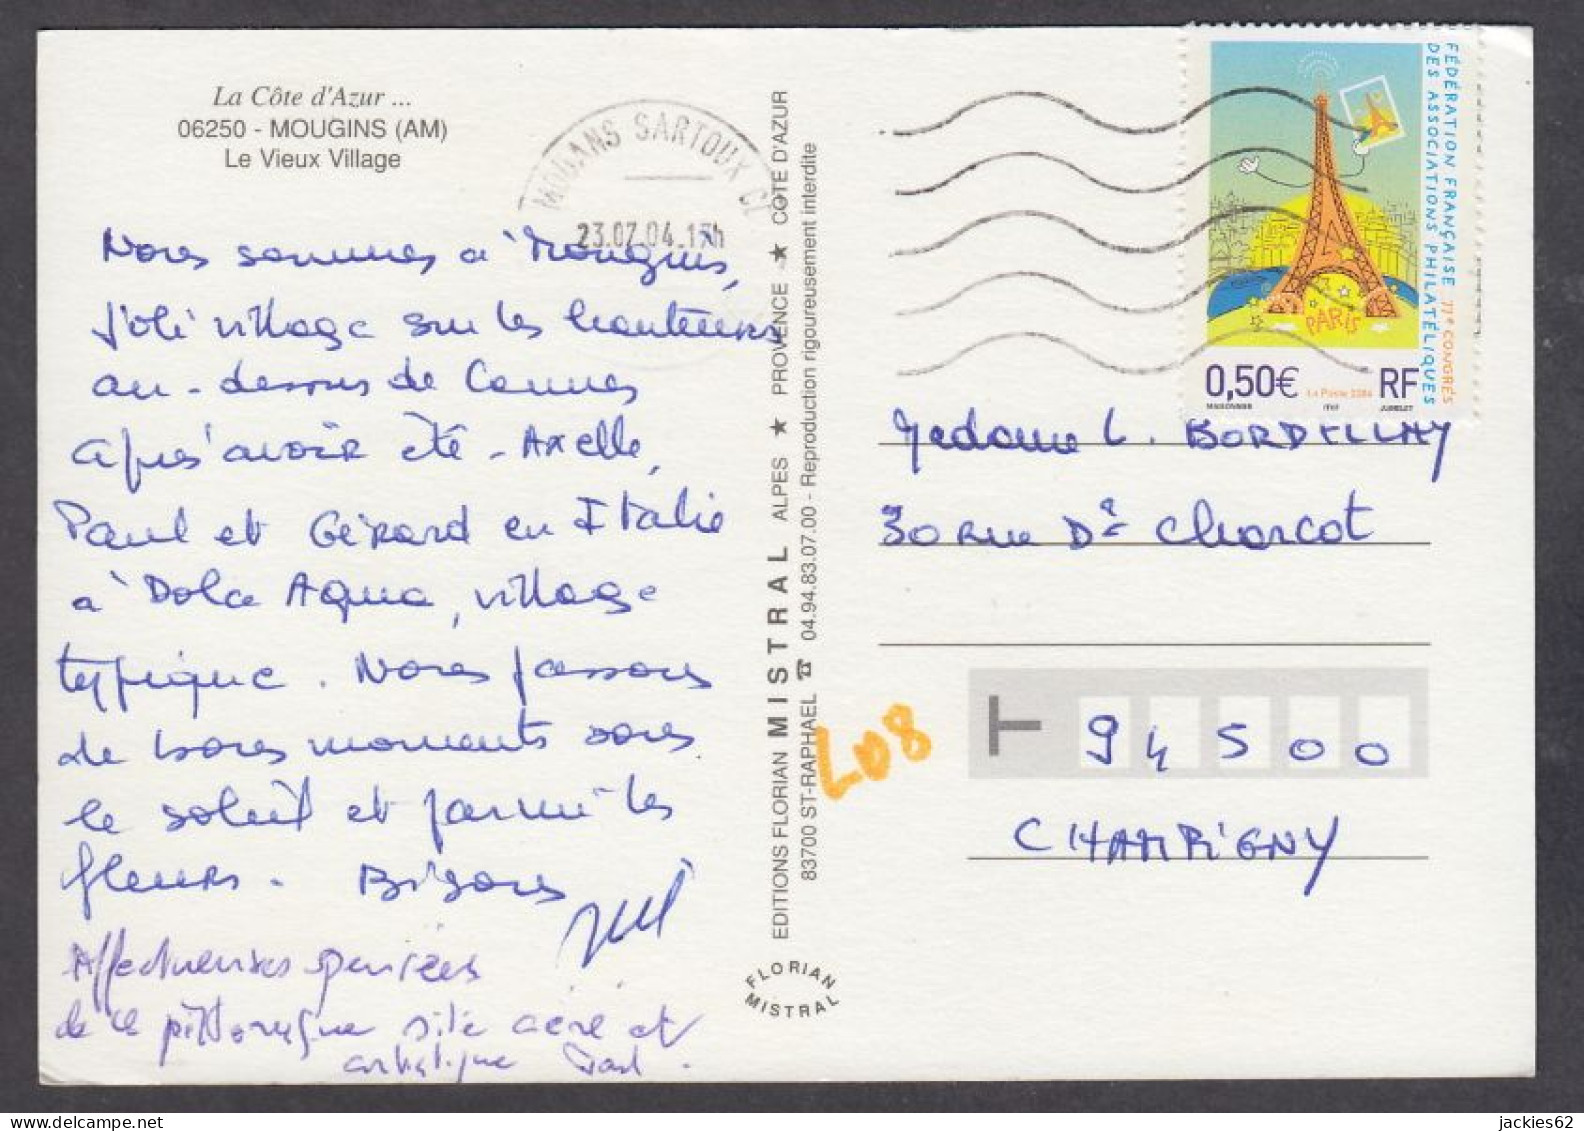 La Côte d'Azur ...
06250 - MOUGINS (AM)
Le Vieux Village
Nous sommes à Mougins,
joli village sur les hauteurs
au-dessus de Cannes
après avoir été - Axelle,
Paul et Gérard en Italie
à Dolce Aqua, village
typique. Nous passons
de bons moments sous
le soleil et parmi les
fleurs. Bisous
Affectueuses pensées
de ce pittoresque site aéré et
artistique Paul.
MOUANS SARTOUX
23.07.04.15h
EDITIONS FLORIAN MISTRAL ALPES ★ PROVENCE ★ COTE D'AZUR
83700 ST-RAPHAEL ☎ 04.94.83.07.00 - Reproduction rigoureusement interdite
FLORIAN
MISTRAL
L08
FÉDÉRATION FRANÇAISE 77e CONGRÈS
DES ASSOCIATIONS PHILATÉLIQUES
PARIS
0,50€ La Poste 2004 RF
MAISONNIER ITVF JUMELET
Madame L. BORDELLAY
30 rue Dr Charcot
T 94500
CHAMPIGNY
jackies62